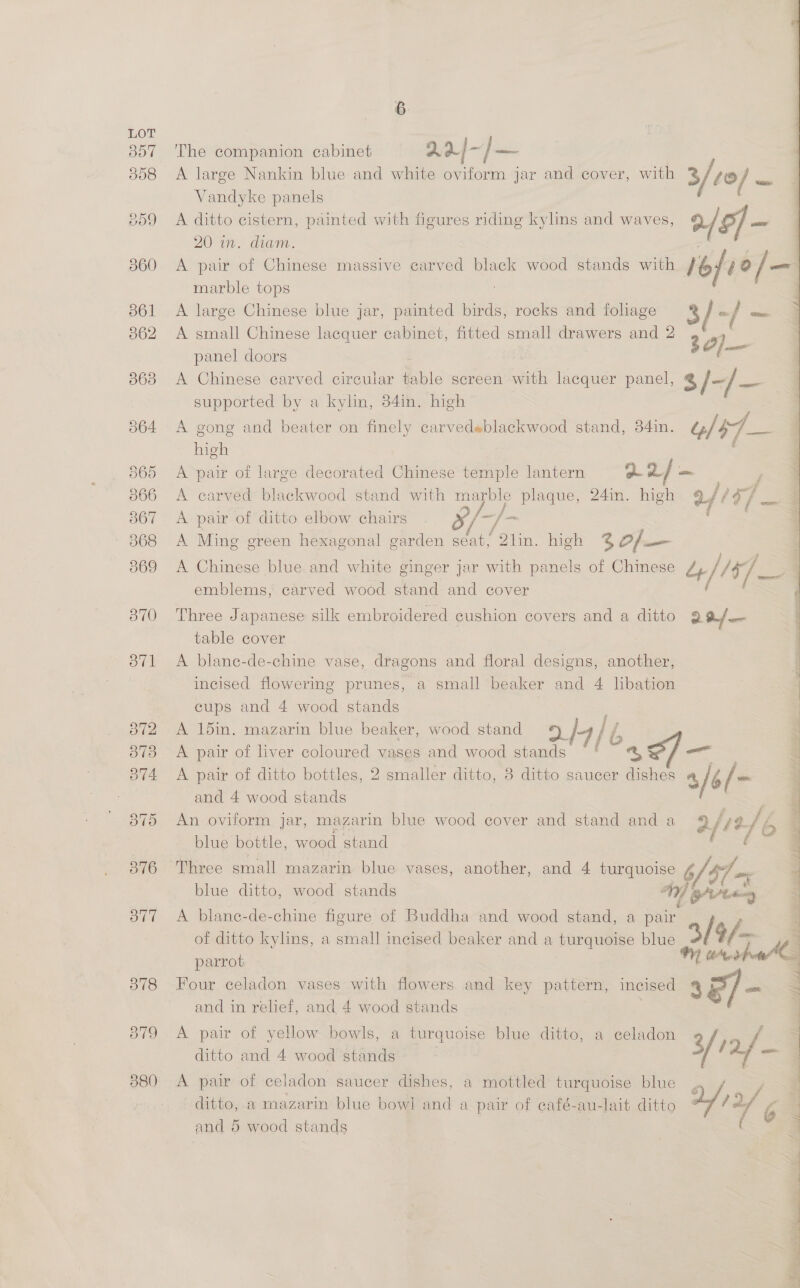 6
LOT
357 The companion cabinet 22/-/-
358 A large Nankin blue and white oviform jar and cover, with 3/10/-
Vandyke panels
359 A ditto cistern, painted with figures riding kylins and waves, 2/5/-
20 in. diam.
360 A pair of Chinese massive carved black wood stands with 16/10/-
marble tops
361 A large Chinese blue jar, painted birds, rocks and foliage 3/-/-
362 A small Chinese lacquer cabinet, fitted small drawers and 2 30/-
panel doors
363 A Chinese carved circular table screen with lacquer panel, 3/-/-
supported by a kylin, 34in. high
364 A gong and beater on finely carved blackwood stand, 34in.
high
365 A pair of large decorated Chinese temple lantern 22/-
366 A carved blackwood stand with marble plaque, 24in. high 2/15/-
367 A pair of ditto elbow chairs 8/-/-
368 A Ming green hexagonal garden seat, 21in. high 30/-
369 A Chinese blue and white ginger jar with panels of Chinese 4/15/-
emblems, carved wood stand and cover
370 Three Japanese silk embroidered cushion covers and a ditto 22/-
table cover
371 A blanc-de-chine vase, dragons and floral designs, another,
incised flowering prunes, a small beaker and 4 libation
cups and 4 wood stands
372 A 15in. mazarin blue beaker, wood stand 2/7/6
373 A pair of liver coloured vases and wood stands 38/-
374 A pair of ditto bottles, 2 smaller ditto, 3 ditto saucer dishes 3/6/-
and 4 wood stands
375 An oviform jar, mazarin blue wood cover and stand and a 2/12/6
blue bottle, wood stand
376 Three small mazarin blue vases, another, and 4 turquoise 6/5/-
blue ditto, wood stands
377 A blanc-de-chine figure of Buddha and wood stand, a pair
of ditto kylins, a small incised beaker and a turquoise blue 3/9/-
parrot
378 Four celadon vases with flowers and key pattern, incised 38/-
and in relief, and 4 wood stands
379 A pair of yellow bowls, a turquoise blue ditto, a celadon 3/12/-
ditto and 4 wood stands
380 A pair of celadon saucer dishes, a mottled turquoise blue
ditto, a mazarin blue bowl and a pair of café-au-lait ditto 2/12/6
and 5 wood stands